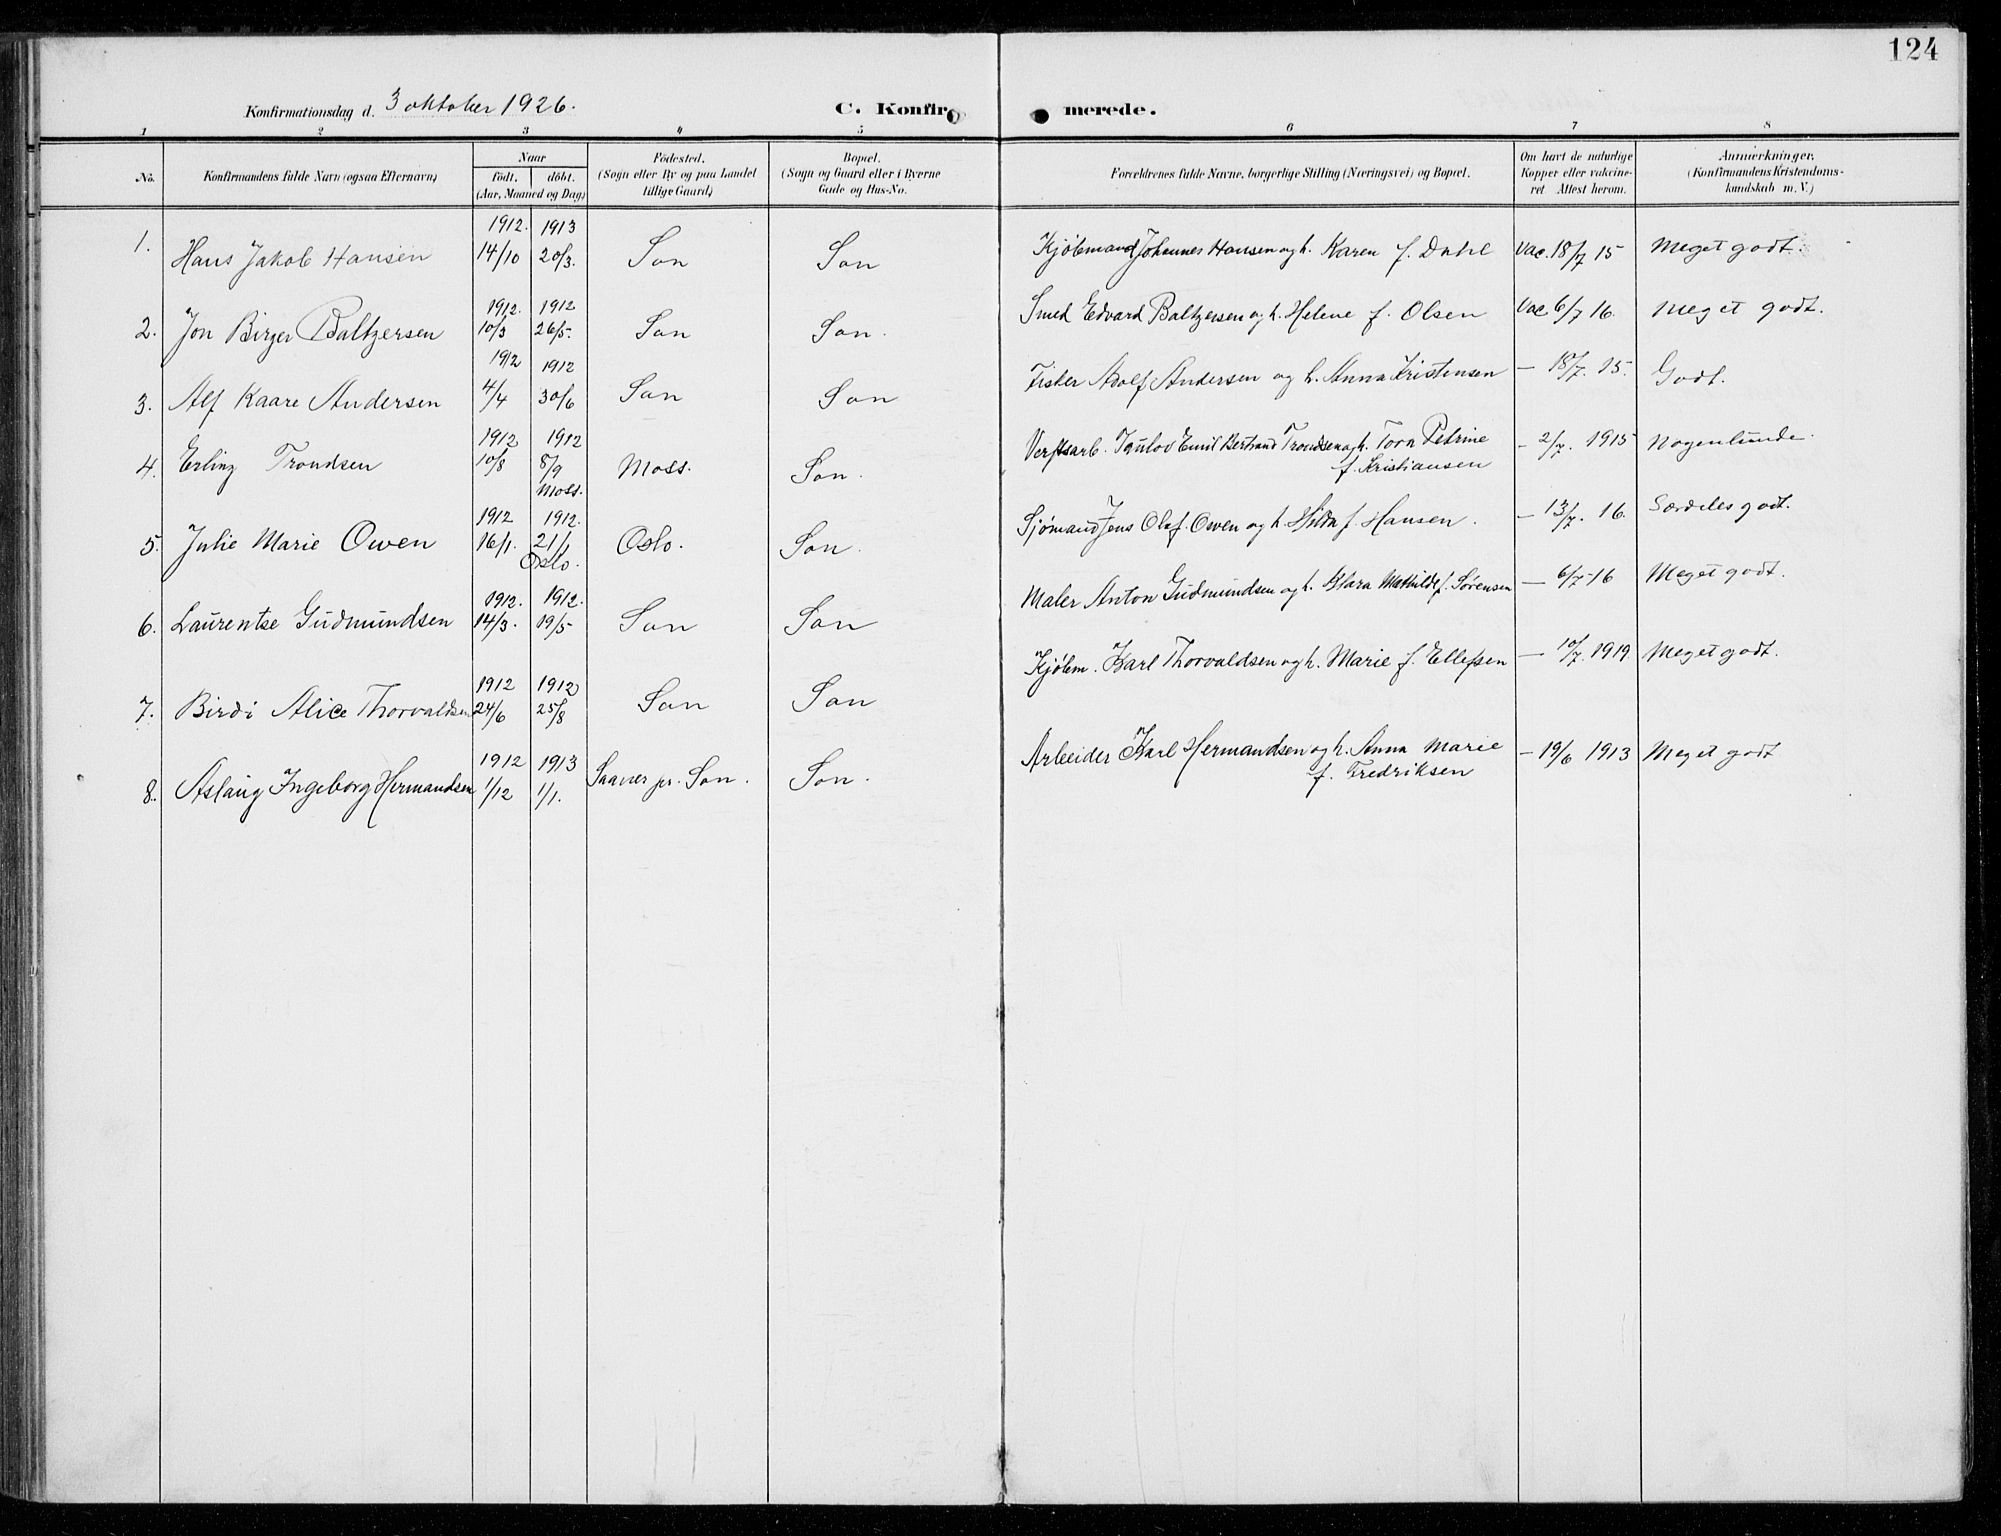 124
Konfirmationsdag d. 3 oktober 1926.
C. Konfirmerede.
1 2 3 4 5 6 7 8
No.
Konfirmandens fulde Navn (ogsaa Efternavn)
Naar
födt. döbt.
(Aar, Maaned og Dag)
Födested.
(Sogn eller By og paa Landet
tillige Gaard)
Bopæl.
(Sogn og Gaard eller i Byerne
Gade og Hus-No.
Forældrenes fulde Navne, borgerlige Stilling (Næringsvei) og Bopæl.
Om havt de naturlige
Kopper eller vakcine-
ret Attest herom.
Anmærkninger.
(Konfirmandens Kristendoms-
kundskab m. V.)
1912. 1913
1. Hans Jakob Hansen 14/10 20/3. Son Son Kjøbmand Johannes Hansen og h. Karen f. Dahl Vac. 18/7 15 Meget godt.
1912. 1912
2. Jon Birger Baltzersen 10/3 26/5. Son Son. Smed Edvard Baltzersen og h. Helene f. Olsen Vac 6/7 16. Meget godt.
1912 1912
3. Alf Kaare Andersen 4/4 30/6 Son Son Fisker Adolf Andersen og h. Anna Kristensen — 18/7. 15. Godt.
1912 1912
4. Erling Trondsen 10/8 8/9 Moss. Son. Verftsarb. Emil Bertrand Trondsen og h. Tora Petrine — 2/7. 1915 Nogenlunde.
Moss. f. Kristiansen
1912 1912.
5. Julie Marie Owen 16/1. 21/1 Oslo. Son. Sjømand Jens Olaf Owen og h. Hilda f. Hansen. — 13/7. 16. Særdeles godt.
Oslo.
1912. 1912.
6. Laurentse Gudmundsen 14/3. 19/5 Son Son Maler Anton Gudmundsen og h. Klara Mathilde f. Sørensen — 6/7 16 Meget godt.
1912 1912
7. Birdi Alice Thorvaldsen 24/6 25/8 Son Son Kjøbm. Karl Thorvaldsen og h. Marie f. Ellefsen — 10/7. 1919 Meget godt.
1912 1913
8. Aslaug Ingeborg Hermandsen 1/12 1/1. Saaner pr. Son. Son. Arbeider Karl Hermandsen og h. Anna Marie — 19/6 1913 Meget godt
f. Fredriksen